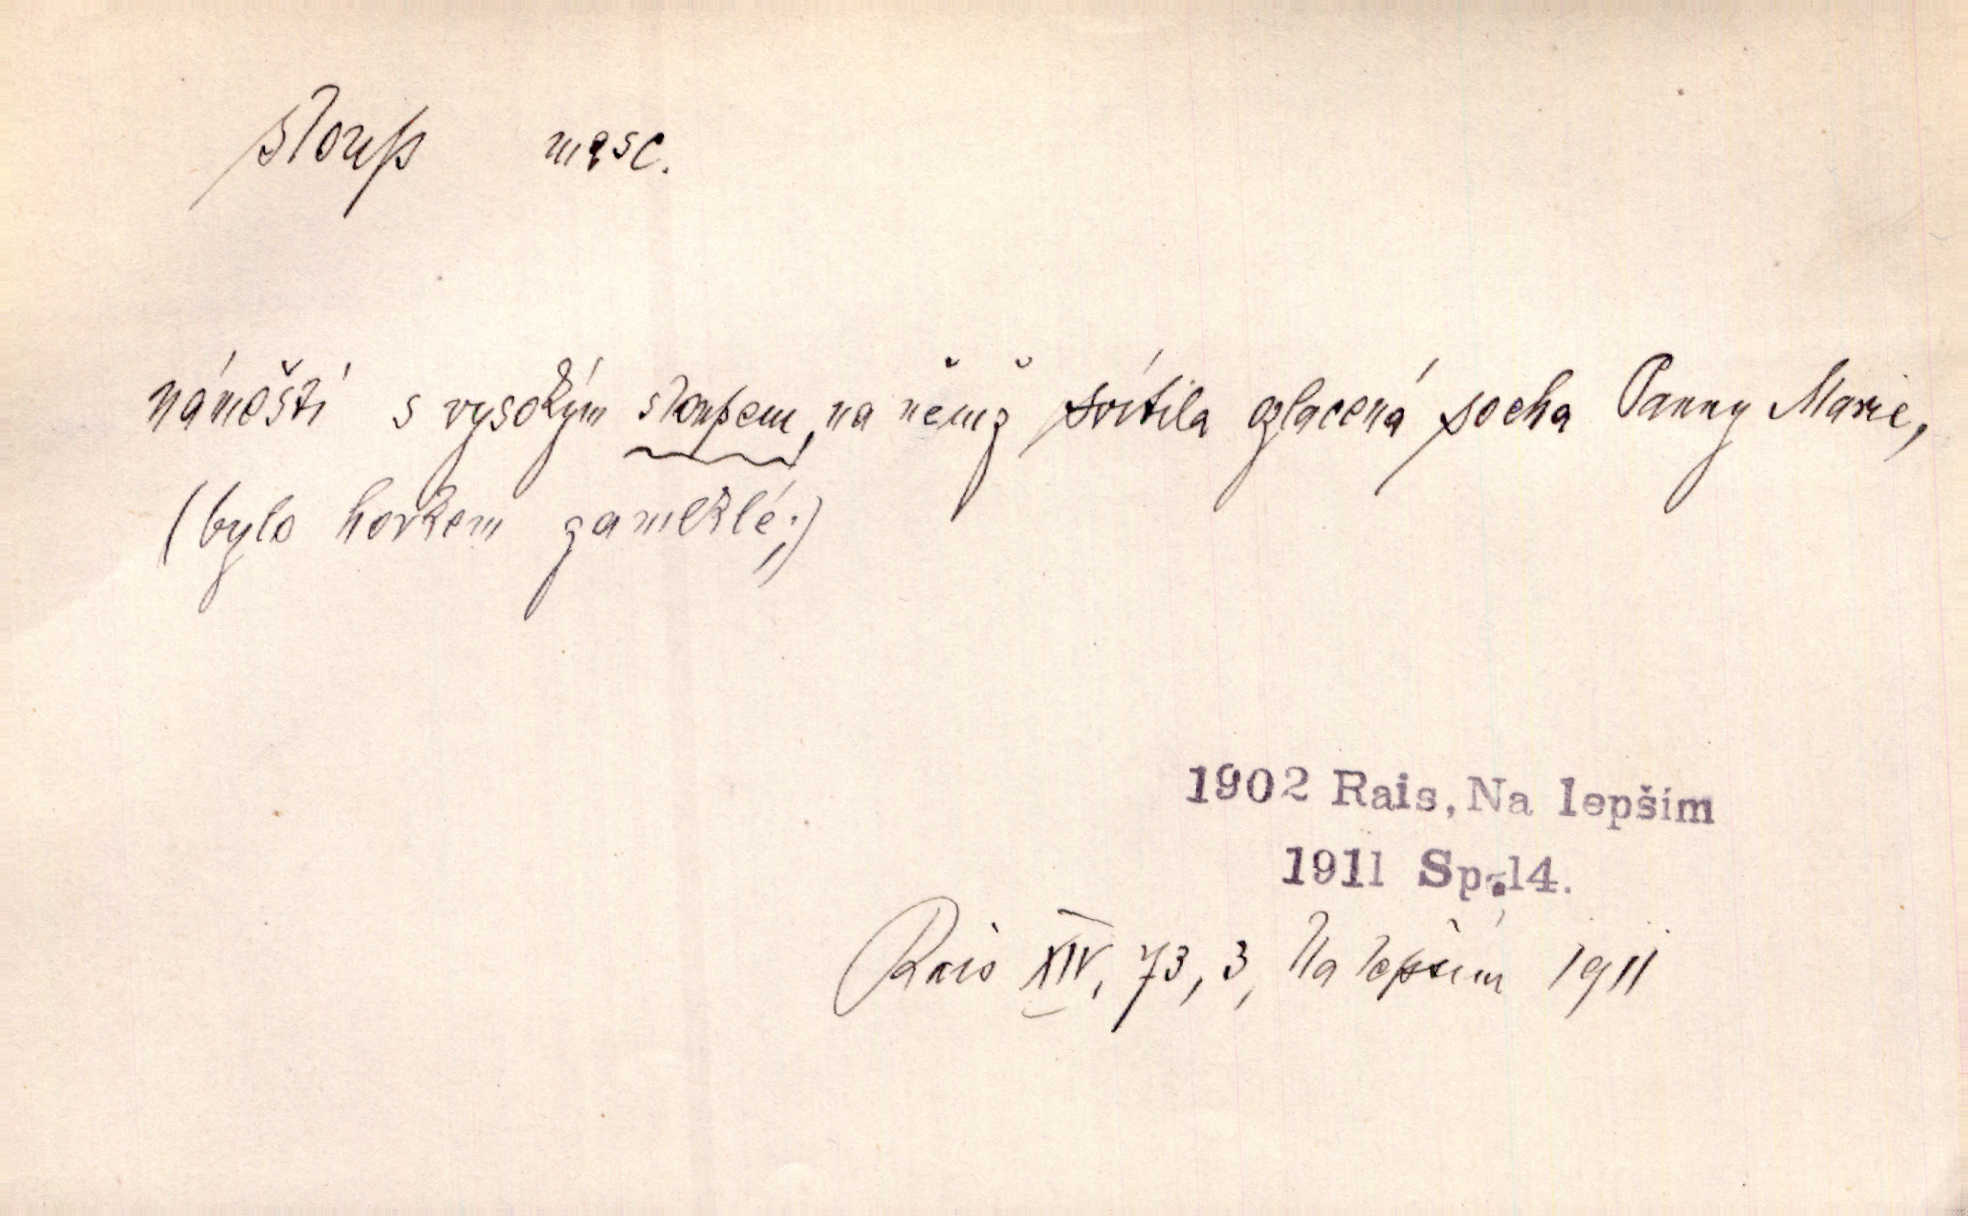 sloup masc.
náměstí s vysokým sloupem, na němž svítila zlacená socha Panny Marie,
(bylo horkem zamklé;)
1902 Rais, Na lepším
1911 Sp. 14.
Rais XIV, 73, 3, Na lepším 1911